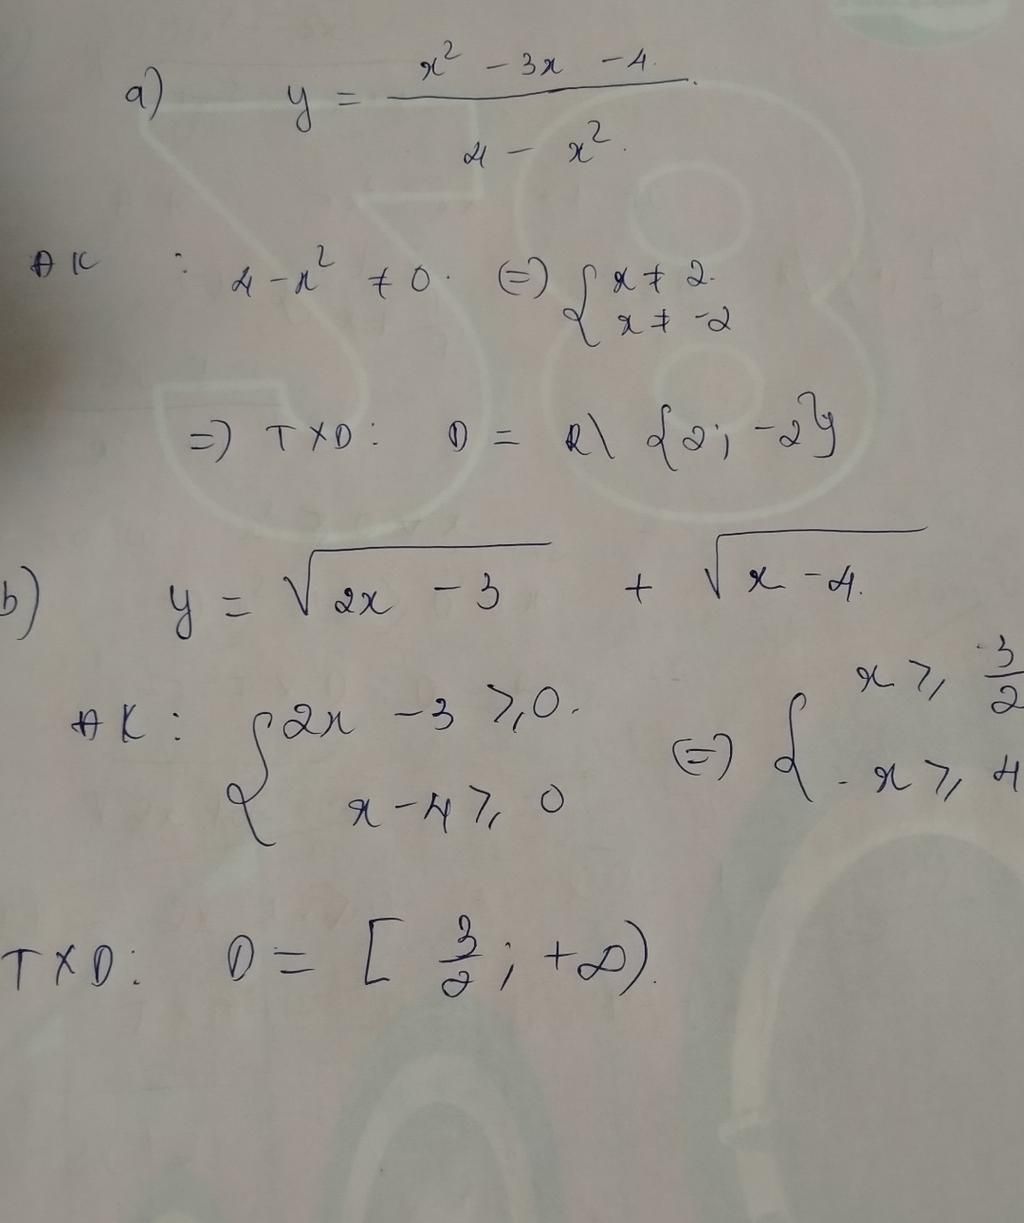 a) y = \frac{x^2 - 3x - 4}{4 - x^2}.
ĐK : 4 - x^2 ≠ 0. (=) { x ≠ 2.
x ≠ -2
=) TXD : D = R\ {2; -2}
b) y = \sqrt{2x - 3} + \sqrt{x - 4}.
ĐK : { 2x - 3 ⩾ 0. (=) { x ⩾ \frac{3}{2}
x - 4 ⩾ 0 x ⩾ 4
TXD : D = [ \frac{3}{2} ; +∞).